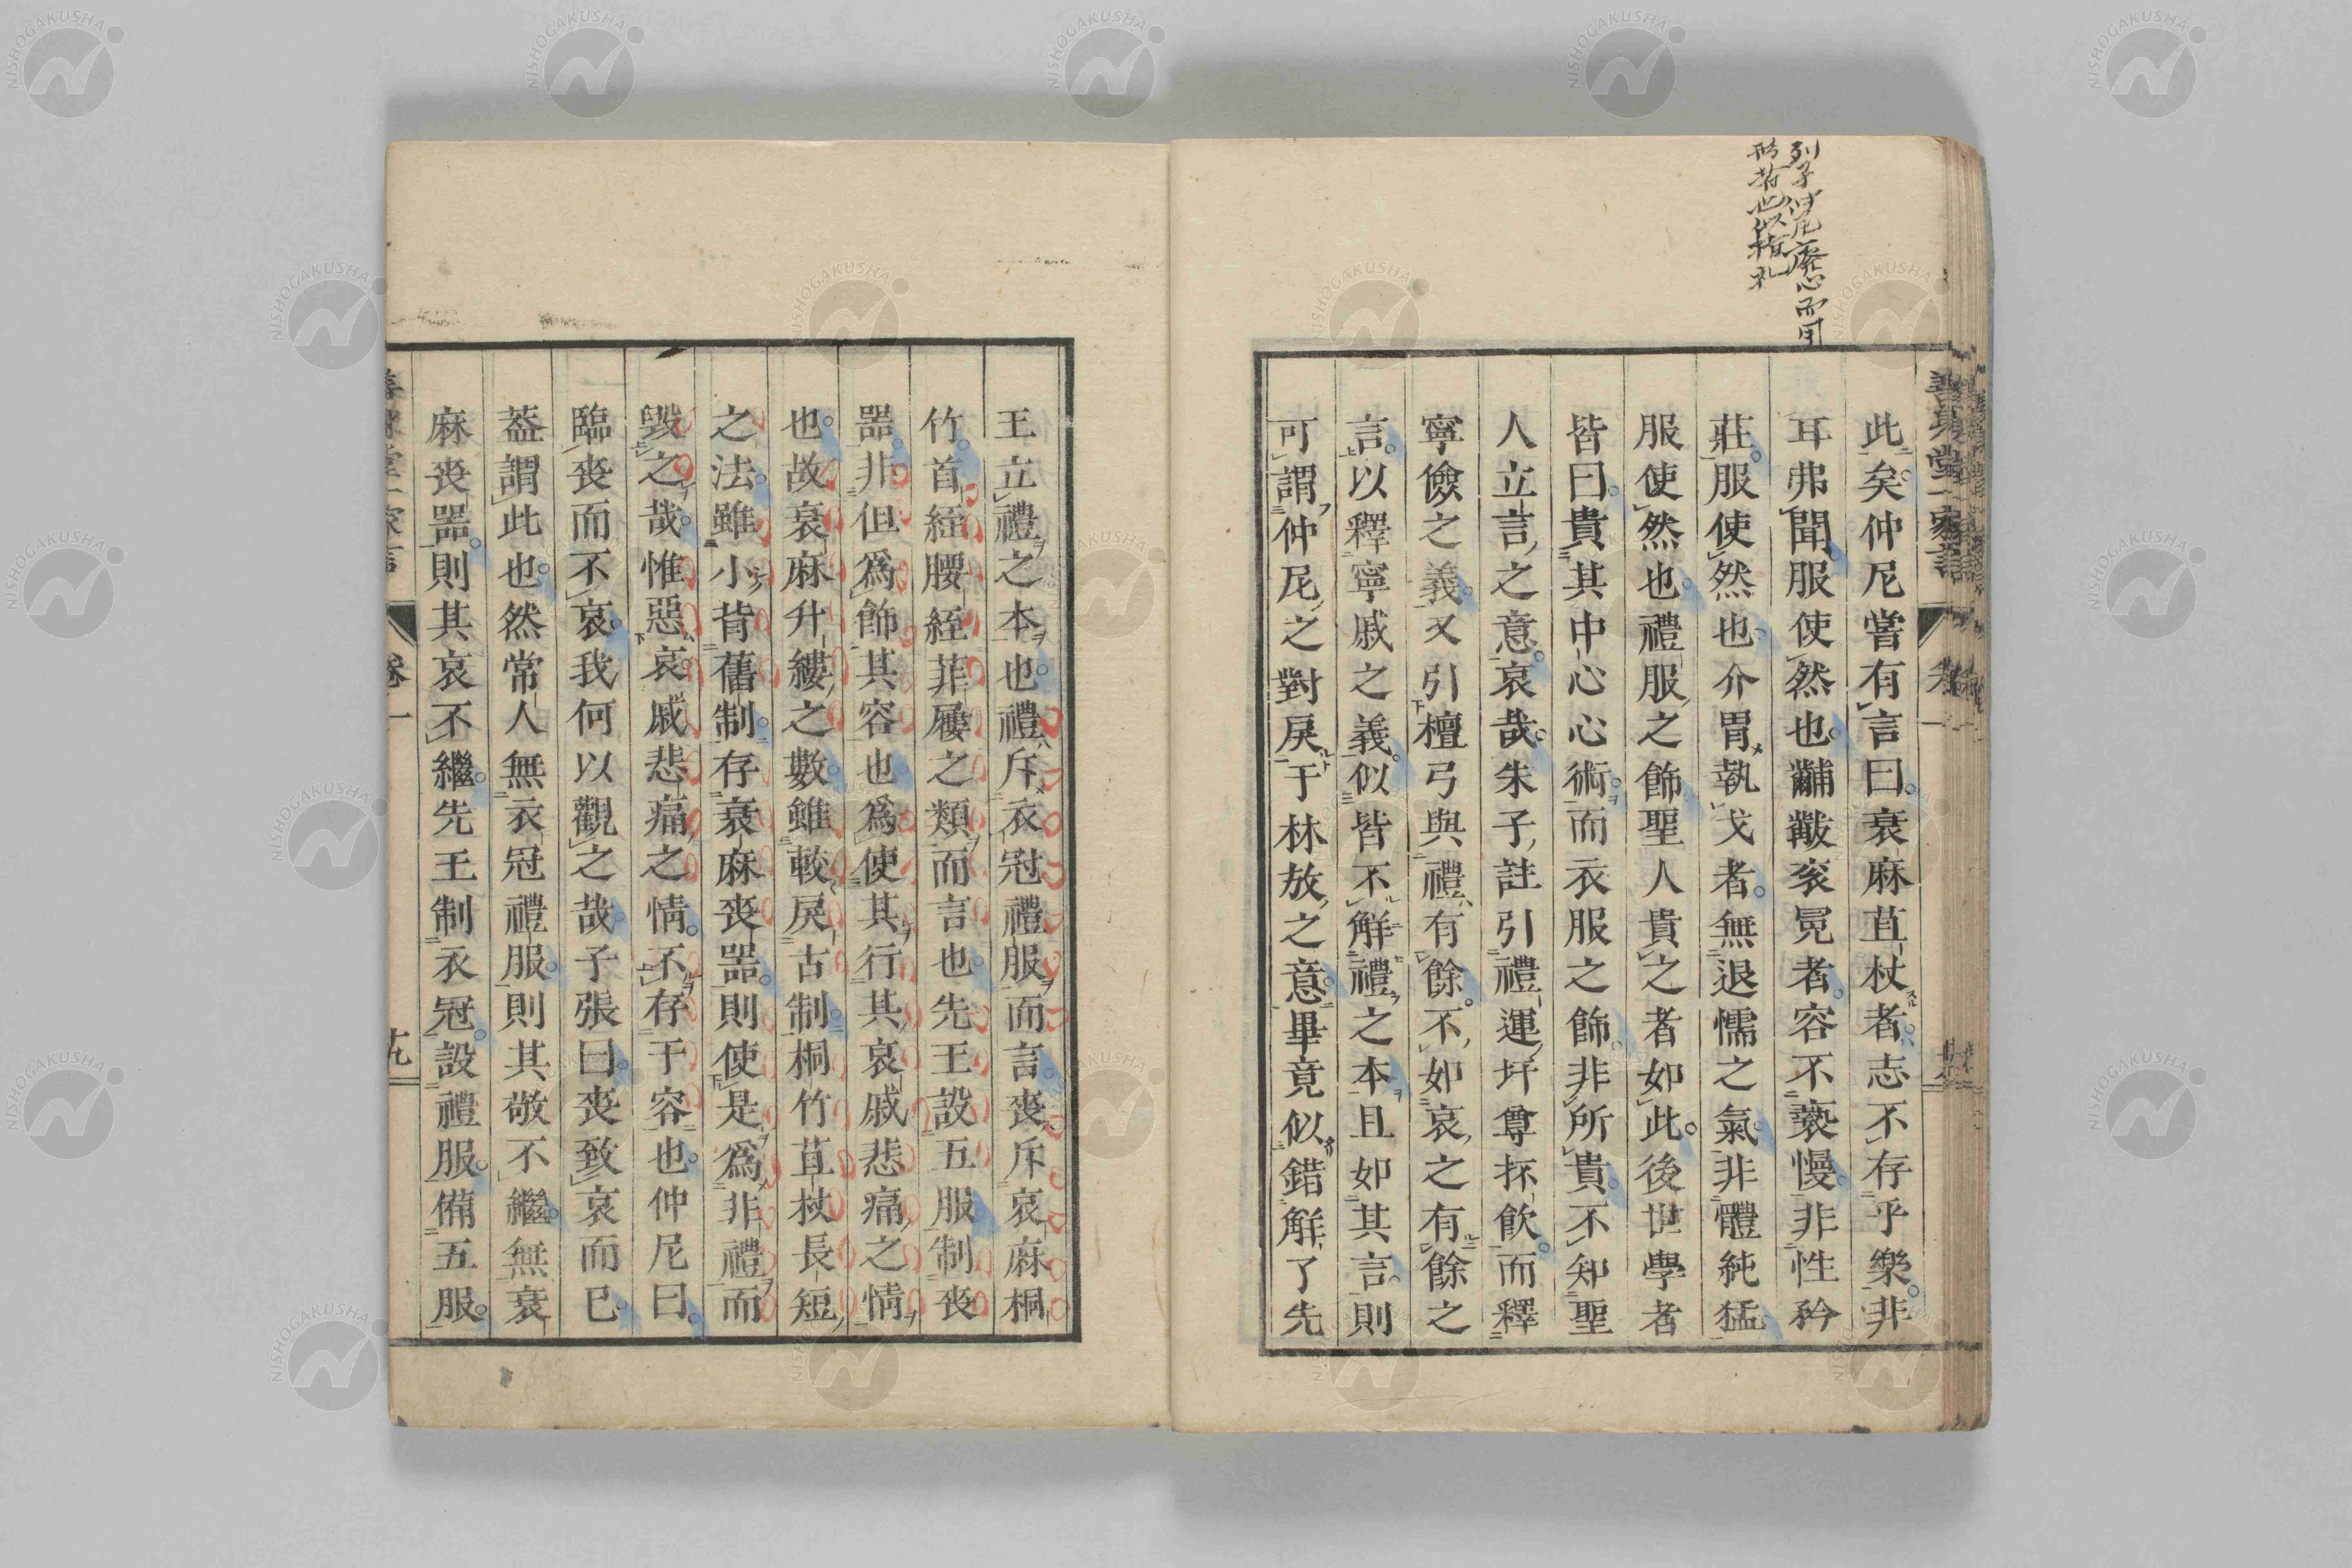 列子仲尼廢心而用
形者也似指礼
此矣仲尼嘗有言曰衰麻苴杖者志不存乎樂非
耳弗聞服使然也黼黻衮冕者容不褻慢非性矜
莊服使然也介冑執戈者無退懦之氣非體純猛
服使然也禮服之飾聖人貴之者如此後世學者
皆曰貴其中心心術而衣服之飾非所貴不知聖
人立言之意哀哉朱子註引禮運坏尊抔飮而釋
寧儉之義又引檀弓與禮有餘不如哀之有餘之
言以釋寧戚之義似皆不解禮之本且如其言則
可謂仲尼之對戾于林放之意畢竟似錯解了先
王立禮之本也禮斥衣冠禮服而言喪斥哀麻桐
竹首絰腰絰菲屨之類而言也先王設五服制喪
器非但爲飾其容也爲使其行其哀戚悲痛之情
也故衰麻升縷之數雖較戾古制桐竹苴杖長短
之法雖小背舊制存衰麻喪器則使是爲非禮而
毀之哉惟惡哀戚悲痛之情不存于容也仲尼曰
臨喪而不哀我何以觀之哉子張曰喪致哀而已
葢謂此也然常人無衣冠禮服則其敬不繼無衰
麻喪器則其哀不繼先王制衣冠設禮服備五服
卷一
十九
NISHOGAKUSHA